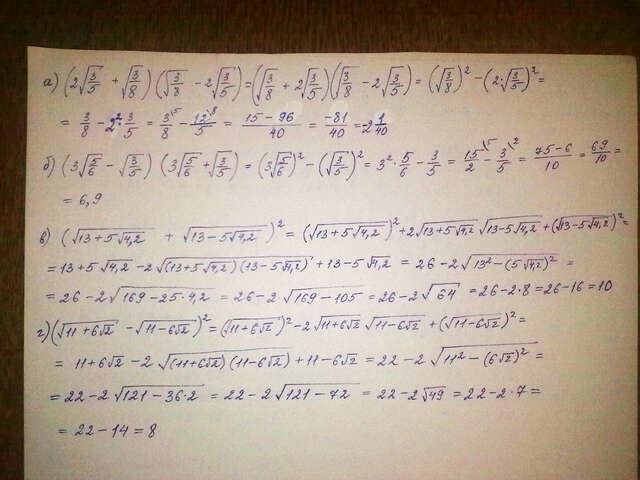 а) (2√3/5 + √3/8) (√3/8 − 2√3/5) = (√3/8 + 2√3/5)(√3/8 − 2√3/5) = (√3/8)² − (2·√3/5)² =
= 3/8 − 2²·3/5 = 3\5/8 − 12\8/5 = (15 − 96)/40 = −81/40 = −2 1/40
б) (3√5/6 − √3/5) (3√5/6 + √3/5) = (3√5/6)² − (√3/5)² = 3²·5/6 − 3/5 = 15\5/2 − 3\2/5 = (75−6)/10 = 69/10 =
= 6,9
в) (√(13+5√4,2) + √(13−5√4,2))² = (√(13+5√4,2))² + 2√(13+5√4,2) √(13−5√4,2) + (√(13−5√4,2))² =
= 13+5√4,2 − 2√((13+5√4,2)(13−5√4,2)) + 13−5√4,2 = 26 − 2√(13² − (5√4,2)²) =
= 26 − 2√(169 − 25·4,2) = 26 − 2√(169 − 105) = 26 − 2√64 = 26 − 2·8 = 26 − 16 = 10
г) (√(11+6√2) − √(11−6√2))² = (√(11+6√2))² − 2√(11+6√2) √(11−6√2) + (√(11−6√2))² =
= 11+6√2 − 2√((11+6√2)(11−6√2)) + 11−6√2 = 22 − 2√(11² − (6√2)²) =
= 22 − 2√(121 − 36·2) = 22 − 2√(121 − 72) = 22 − 2√49 = 22 − 2·7 =
= 22 − 14 = 8